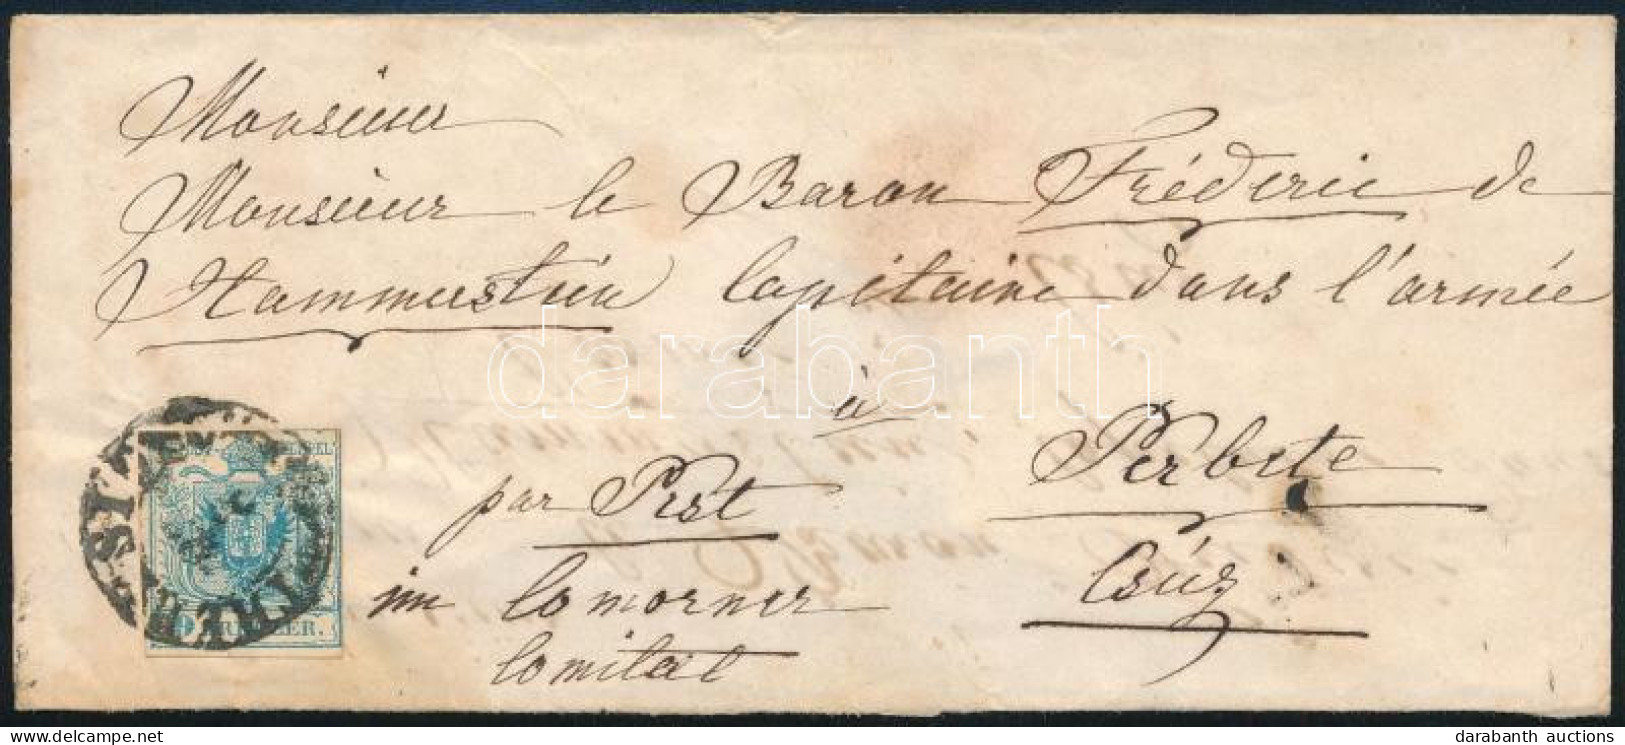 Monsieur
Monsieur le Baron Fréderic de
Hammerstein Capitaine dans l'armée
à
par Pest Perbete
im Comorner Csúz
Comitat
KREUZER.
darabanth
delcampe.net
darabanth auctions